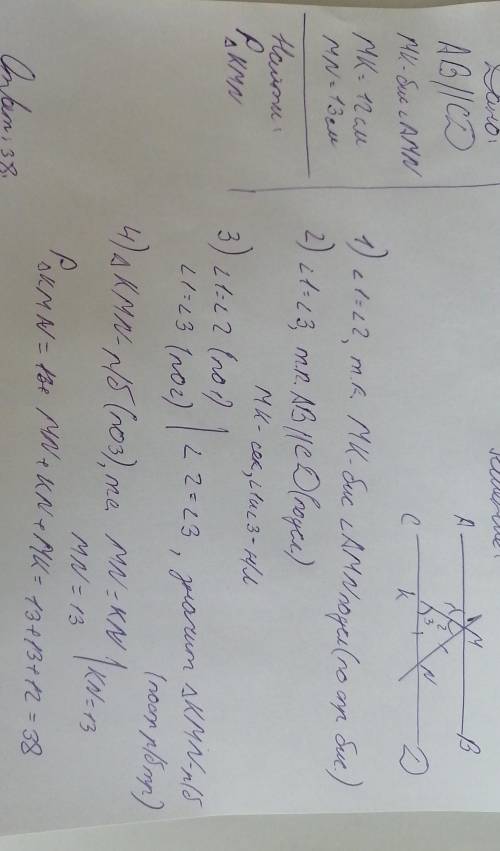 Дано:
AB||CD
MK-бис ∠AMN
MK=12см
MN=13см
Найти:
P
△KMN
A M B
1 2
3
C K N D
1) ∠1=∠2, т.к. MK-бис ∠AMN по усл (по опр бис.)
2) ∠1=∠3, т.к. AB||CD (по усл)
MK-сек, ∠1 и ∠3-н/л
3) ∠1=∠2 (по 1)
∠1=∠3 (по 2) | ∠2=∠3, значит △KMN-р/б
4) △KMN-р/б (по 3), т.е. MN=KN
MN=13 | KN=13
P△KMN= MN+KN+MK=13+13+12=38
Ответ: 38.